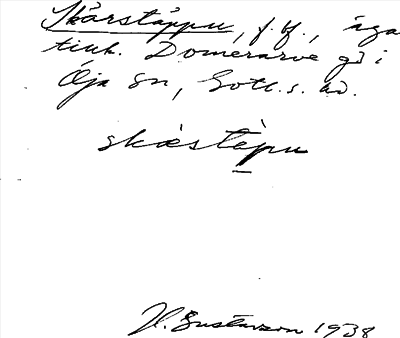 Skärstäppu, f. f., äga
tillh. Domerarve gd i
Öja sn, Gotl. s. hd.
skæstèpu
H. Gustavson 1938